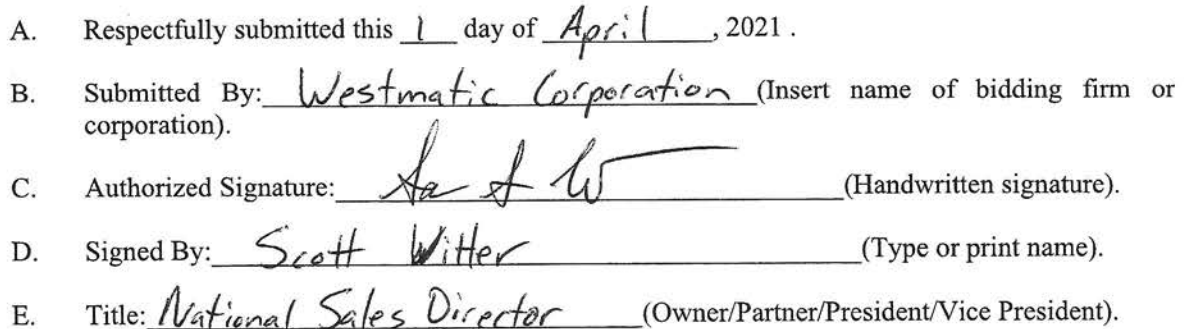 A. Respectfully submitted this 1 day of April, 2021 .
B. Submitted By: Westmatic Corporation (Insert name of bidding firm or
corporation).
C. Authorized Signature: (Handwritten signature).
D. Signed By: Scott Witter (Type or print name).
E. Title: National Sales Director (Owner/Partner/President/Vice President).